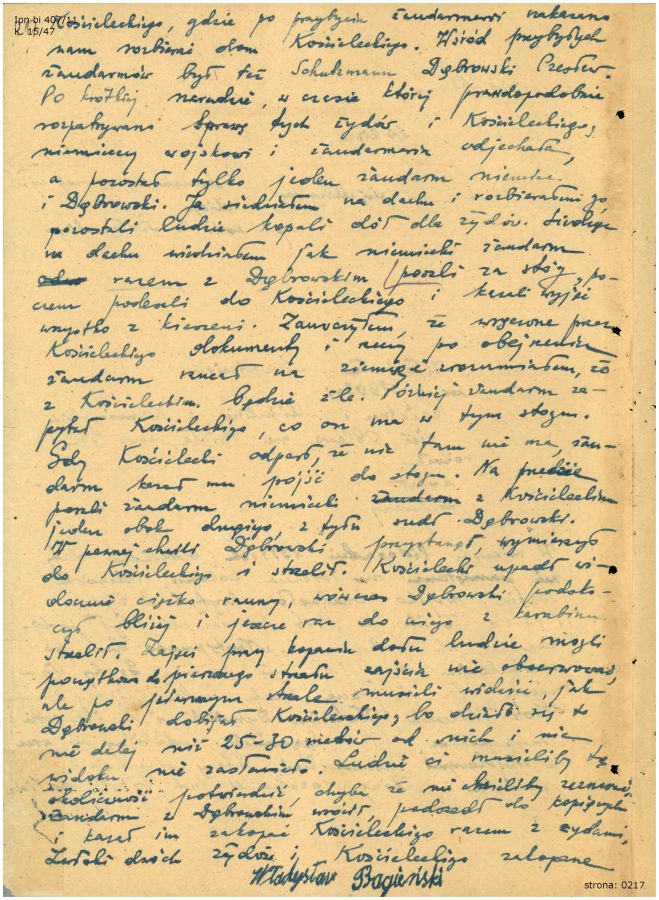 Ipn bi 407/11
K. 15/47
Kościeleckiego, gdzie po przybyciu żandarmerii nakazano
nam rozbierać dom Kościeleckiego. Wśród przybyłych
żandarmów był też Schutzmann Dąbrowski Czesław.
Po krótkiej naradzie, w czasie której prawdopodobnie
rozpatrywano sprawę tych żydów i Kościeleckiego,
niemieccy wojskowi i żandarmeria odjechała,
a pozostał tylko jeden żandarm niemiec
i Dąbrowski. Ja siedziałem na dachu i rozbierałem go,
pozostali ludzie kopali dół dla żydów. Siedząc
na dachu widziałem jak niemiecki żandarm
razem z Dąbrowskim poszli za stóg, po-
czem podeszli do Kościeleckiego i kazali wyjąć
wszystko z kieszeni. Zauważyłem, że wyjęte przez
Kościeleckiego dokumenty i po obejrzeniu
żandarm rzucał na ziemię i zrozumiałem, że
z Kościeleckim będzie źle. Później żandarm za-
pytał Kościeleckiego, co on ma w tym stogu.
Gdy Kościelecki odparł, że nic tam nie ma, żan-
darm kazał mu pójść do stogu. Na przedzie
poszli żandarm niemiecki żandarm z Kościeleckim
jeden obok drugiego z tyłu szedł Dąbrowski.
W pewnej chwili Dąbrowski przystanął, wymierzył
do Kościeleckiego i strzelił. Kościelecki upadł wi-
docznie ciężko ranny, wówczas Dąbrowski podsko-
czył bliżej i jeszcze raz do niego z karabinu
strzelił. Zajęci przy kopaniu dołu ludzie mogli
początkowo do pierwszego strzału zajścia nie obserwować,
ale po pierwszym strzale musieli widzieć, jak
Dąbrowski dobijał Kościeleckiego, bo działo się to
nie dalej niż 25-30 metrów od nich i nic
widoku nie zasłaniało. Ludzie ci musieliby tę
okoliczność potwierdzić, chyba że nie chcieliby zeznawać.
Żandarm z Dąbrowskim wrócił, podszedł do kopiących
i kazał im zakopać Kościeleckiego razem z żydami,
Zwłoki dwóch żydów i Kościeleckiego zakopane
Władysław Bagieński
strona: 0217